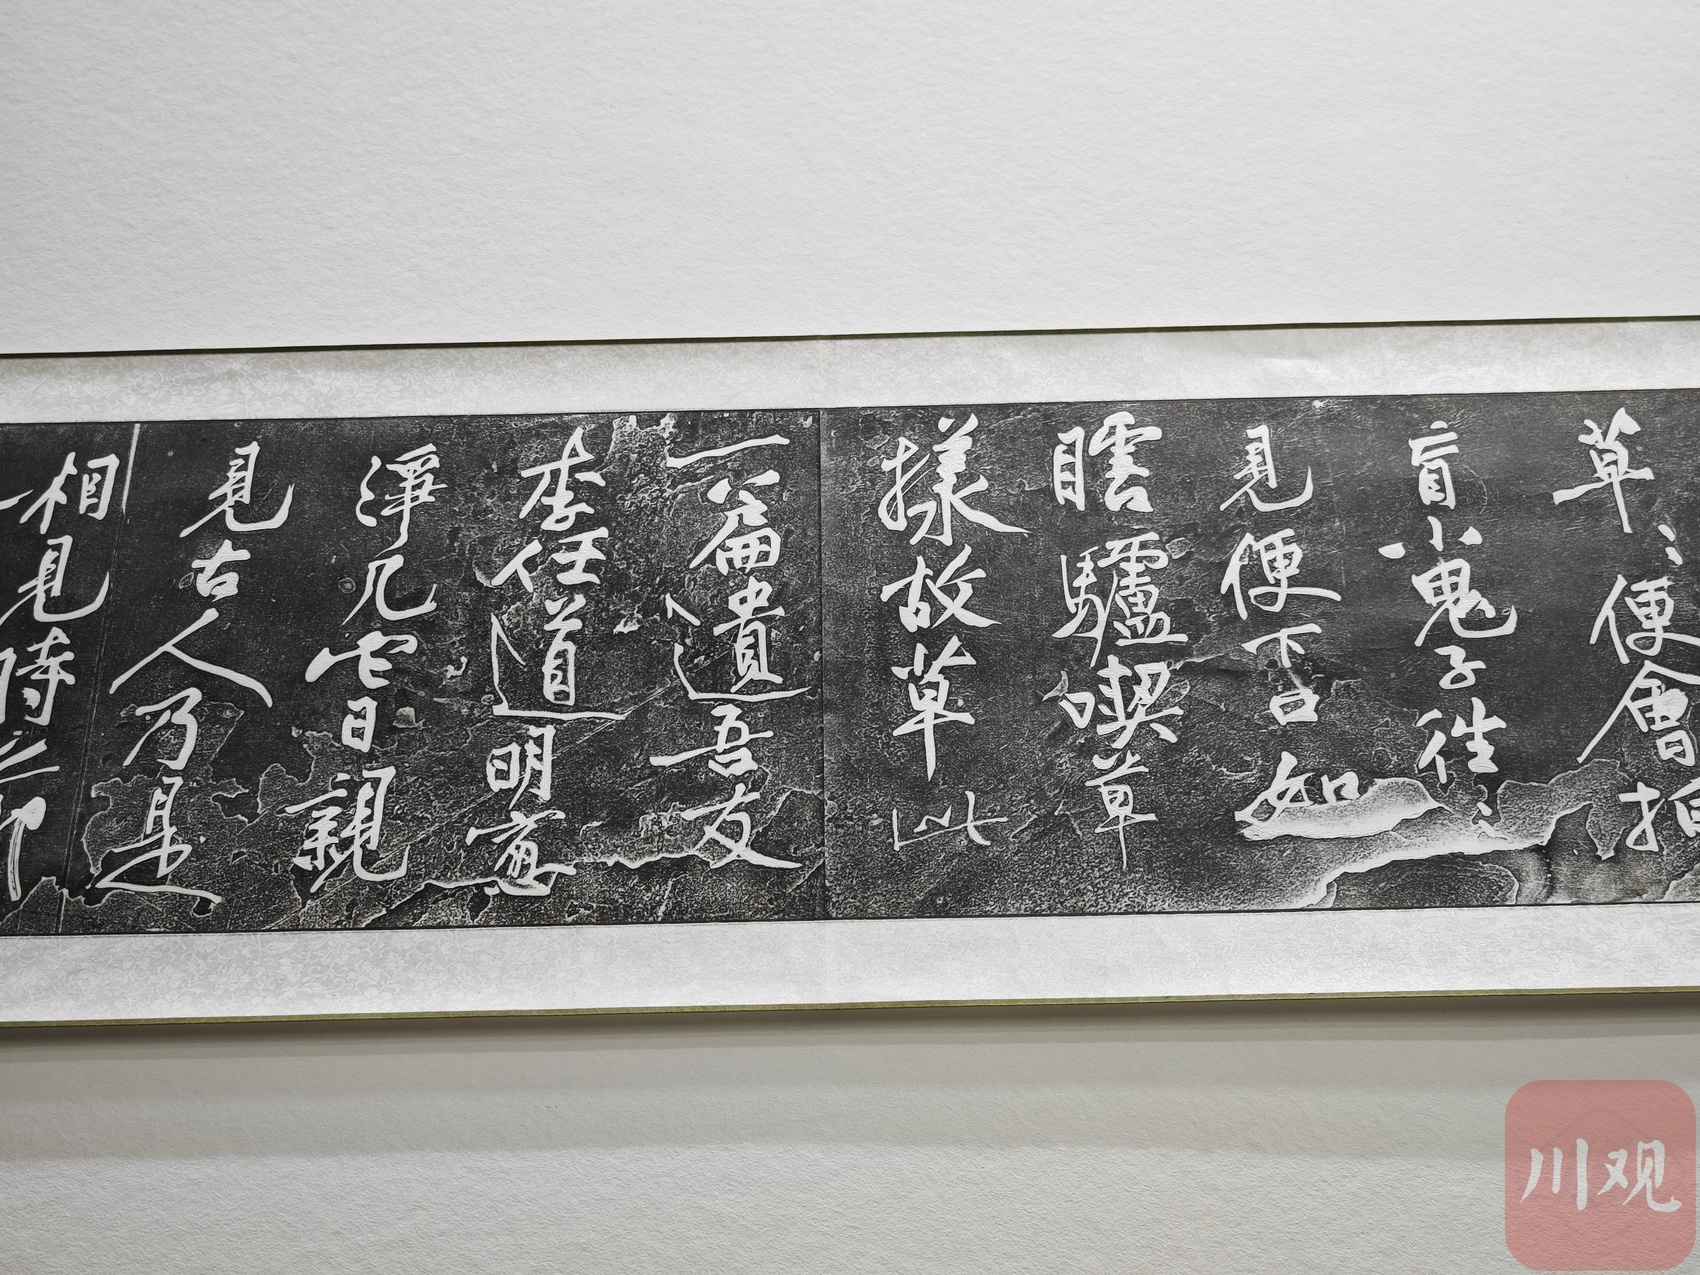 草〻便會拍
盲小鬼子往〻
見便下口如
瞎驢喫草
樣故草此
一篇遺吾友
李任道明窓
淨几它日親
見古人乃是
相見時節
川观